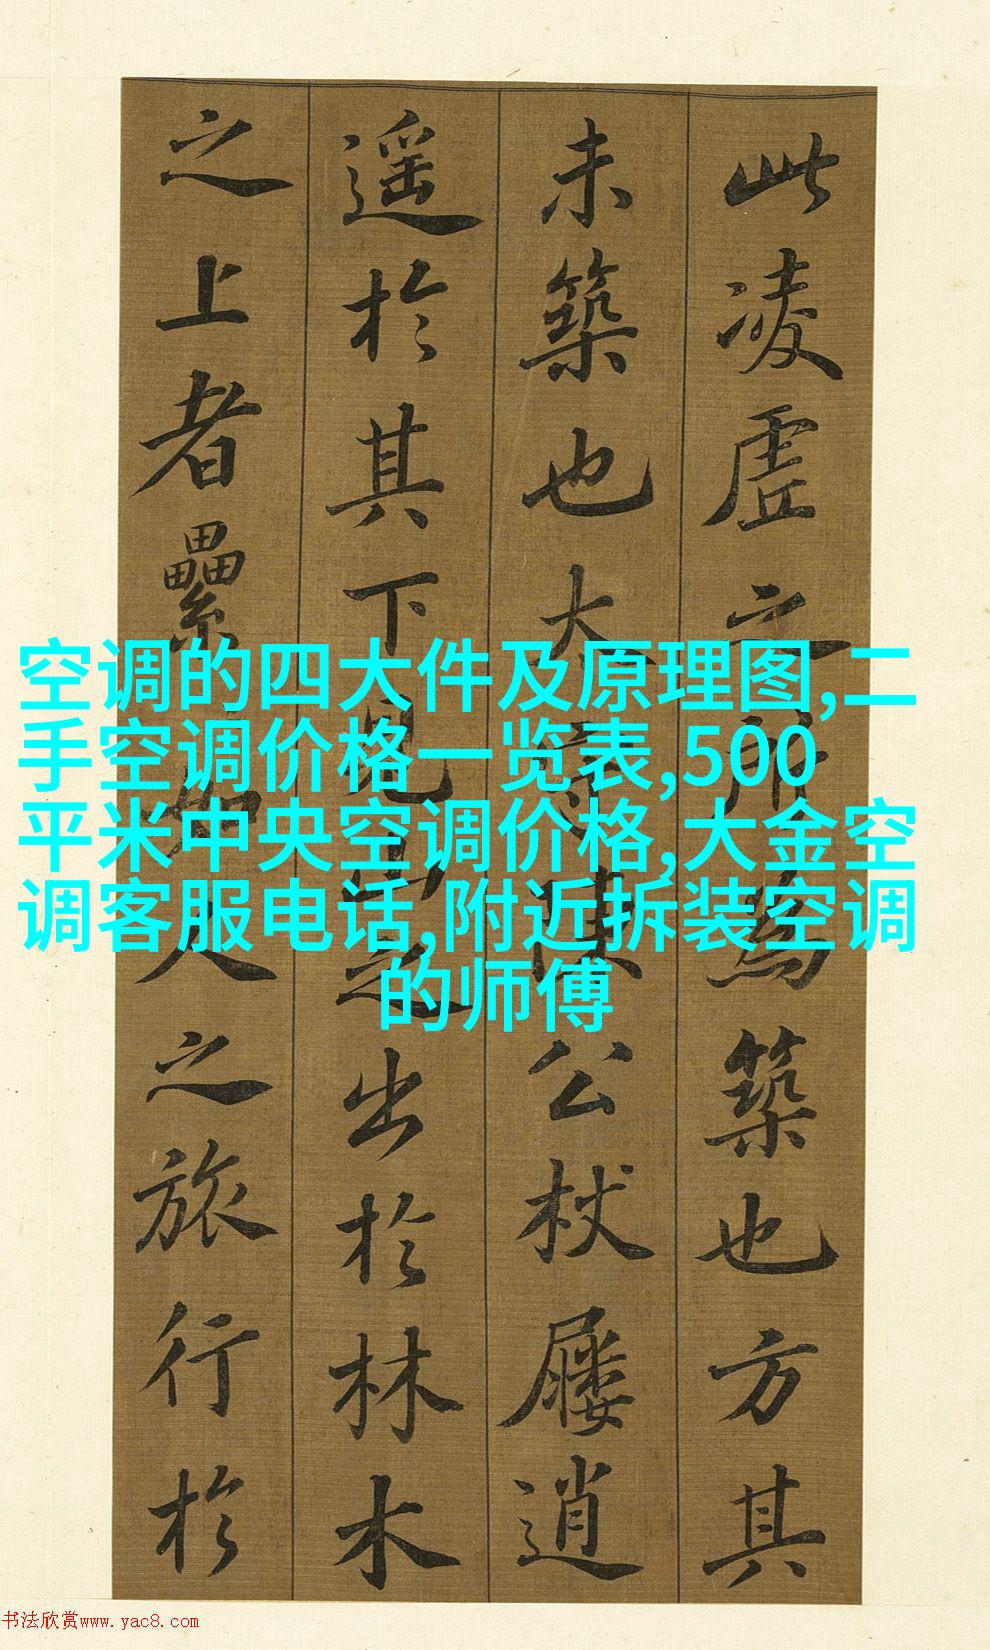 此凌虛之所為築也方其
未築也太守陳公杖屨逍
遥於其下見山之出於林木
之上者纍如人之旅行於
空调的四大件及原理图,二
手空调价格一览表,500
平米中央空调价格,大金空
调客服电话,附近拆装空调
的师傅
书法欣赏www.yac8.com